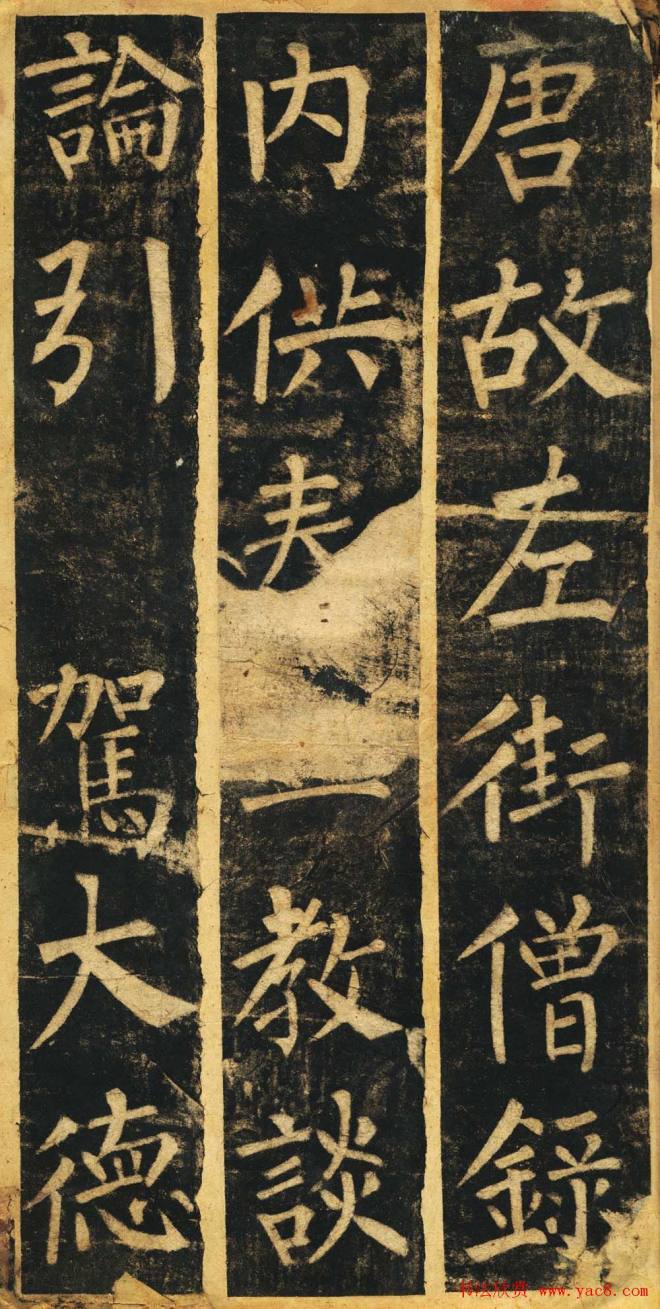 唐故左街僧錄
内供奉教談
論引駕大德
书法欣赏 www.yac8.com